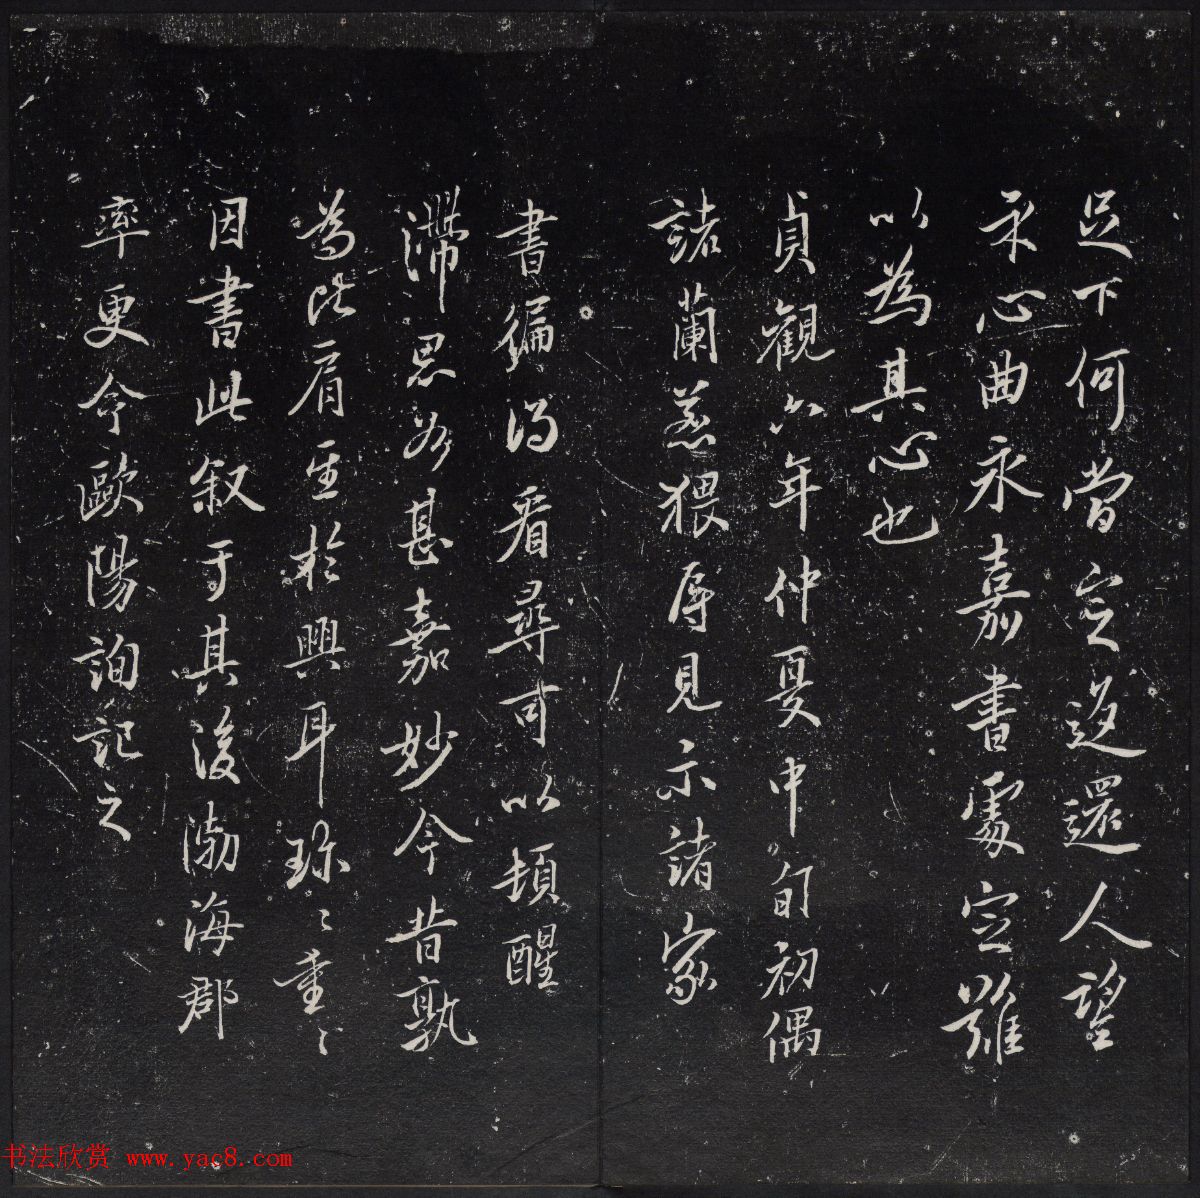 足下何當定遲還人望
示心曲永嘉書處定難
以為其心也
貞觀六年仲夏中旬初偶
諸蘭若猥辱見示諸家
書徧得看尋可以頓醒
滯思為甚嘉妙今昔孰
為比肩至於興耳珎〻重〻
因書此叙于其後渤海郡
率更令歐陽詢記之
书法欣赏 www.yac8.com